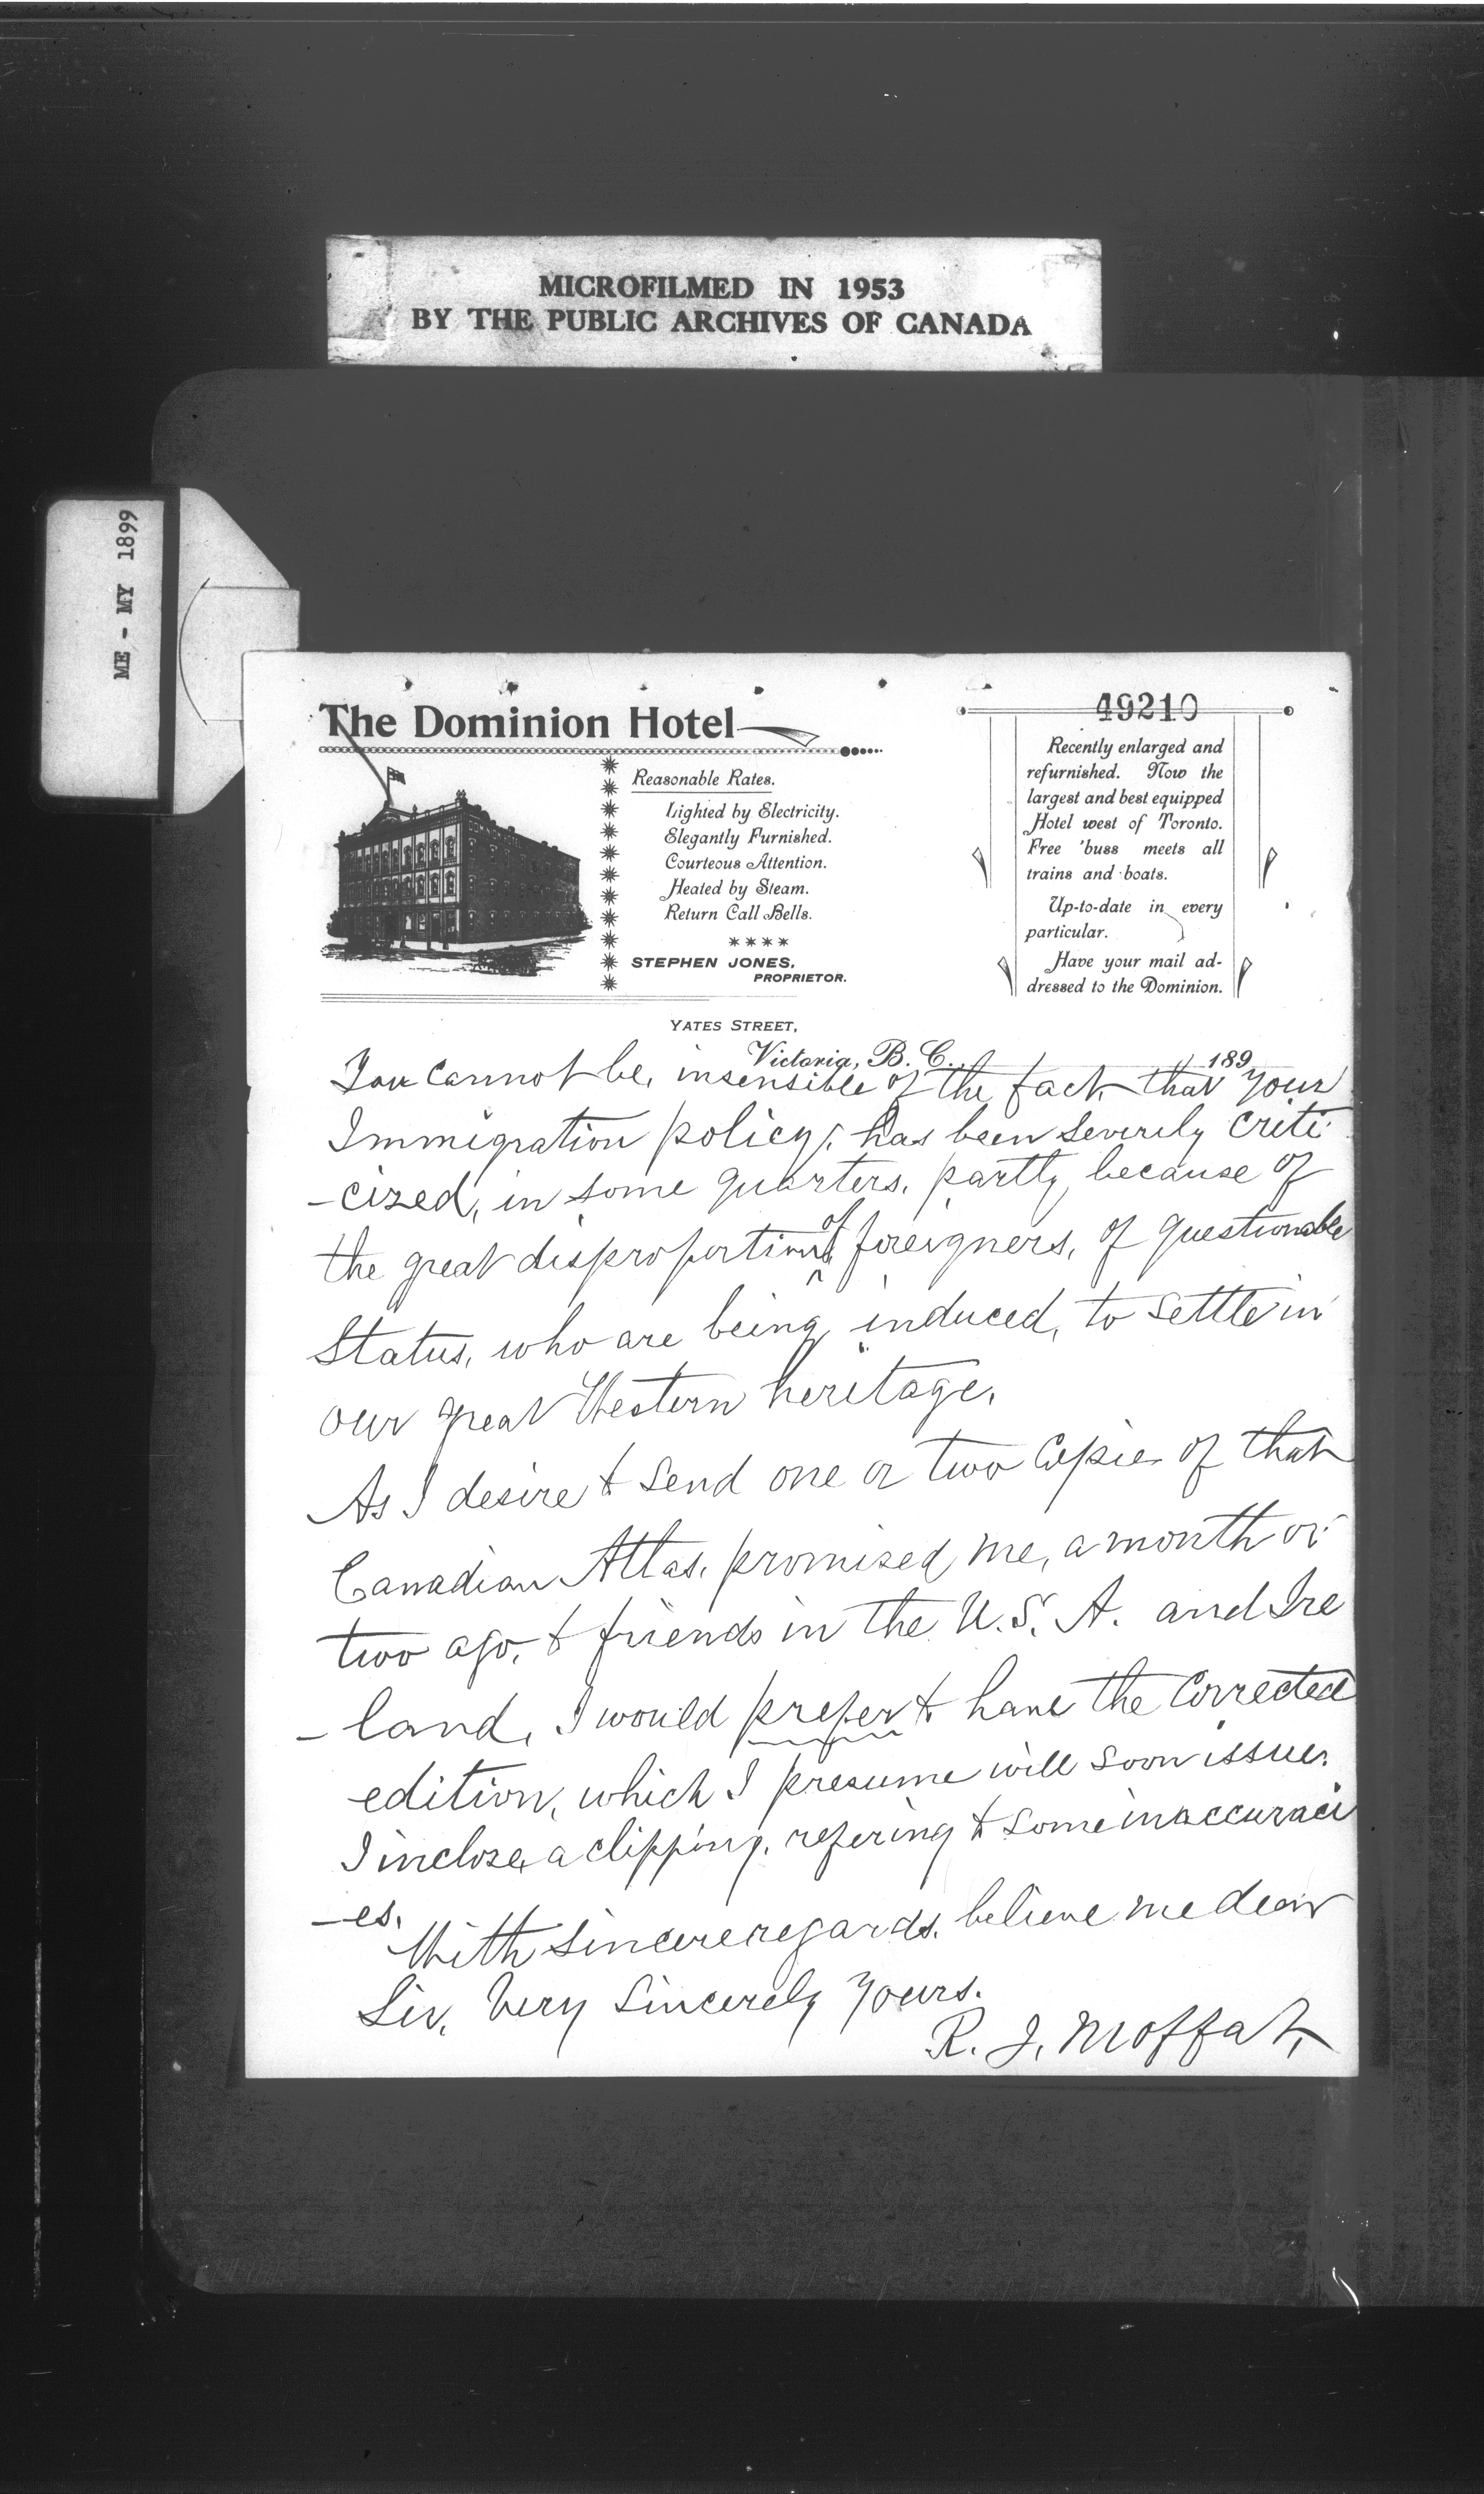 MICROFILMED IN 1953
BY THE PUBLIC ARCHIVES OF CANADA
ME - MY 1899
49210
The Dominion Hotel
Reasonable Rates.
Lighted by Electricity.
Elegantly Furnished.
Courteous Attention.
Heated by Steam.
Return Call Bells.
****
STEPHEN JONES,
PROPRIETOR.
Recently enlarged and
refurnished. Now the
largest and best equipped
Hotel west of Toronto.
Free 'buss meets all
trains and boats.
Up-to-date in every
particular.
Have your mail ad-
dressed to the Dominion.
YATES STREET,
Victoria, B. C. 189
You cannot be, insensible of the fact that your
Immigration policy, has been severely criti-
-cized, in some quarters, partly because of
the great disproportion of foreigners, of questionable
Status, who are being induced, to settle in
our great Western heritage.
As I desire to send one or two Copies of that
Canadian Atlas, promised me, a month or
two ago, to friends in the U.S.A. and Ire
-land, I would prefer to have the Corrected
edition, which I presume will soon issue.
I inclose a clipping, refering to some inaccuraci
-es.
With sincere regards, believe me dear
Sir, Very Sincerely Yours.
R. J. Moffat,